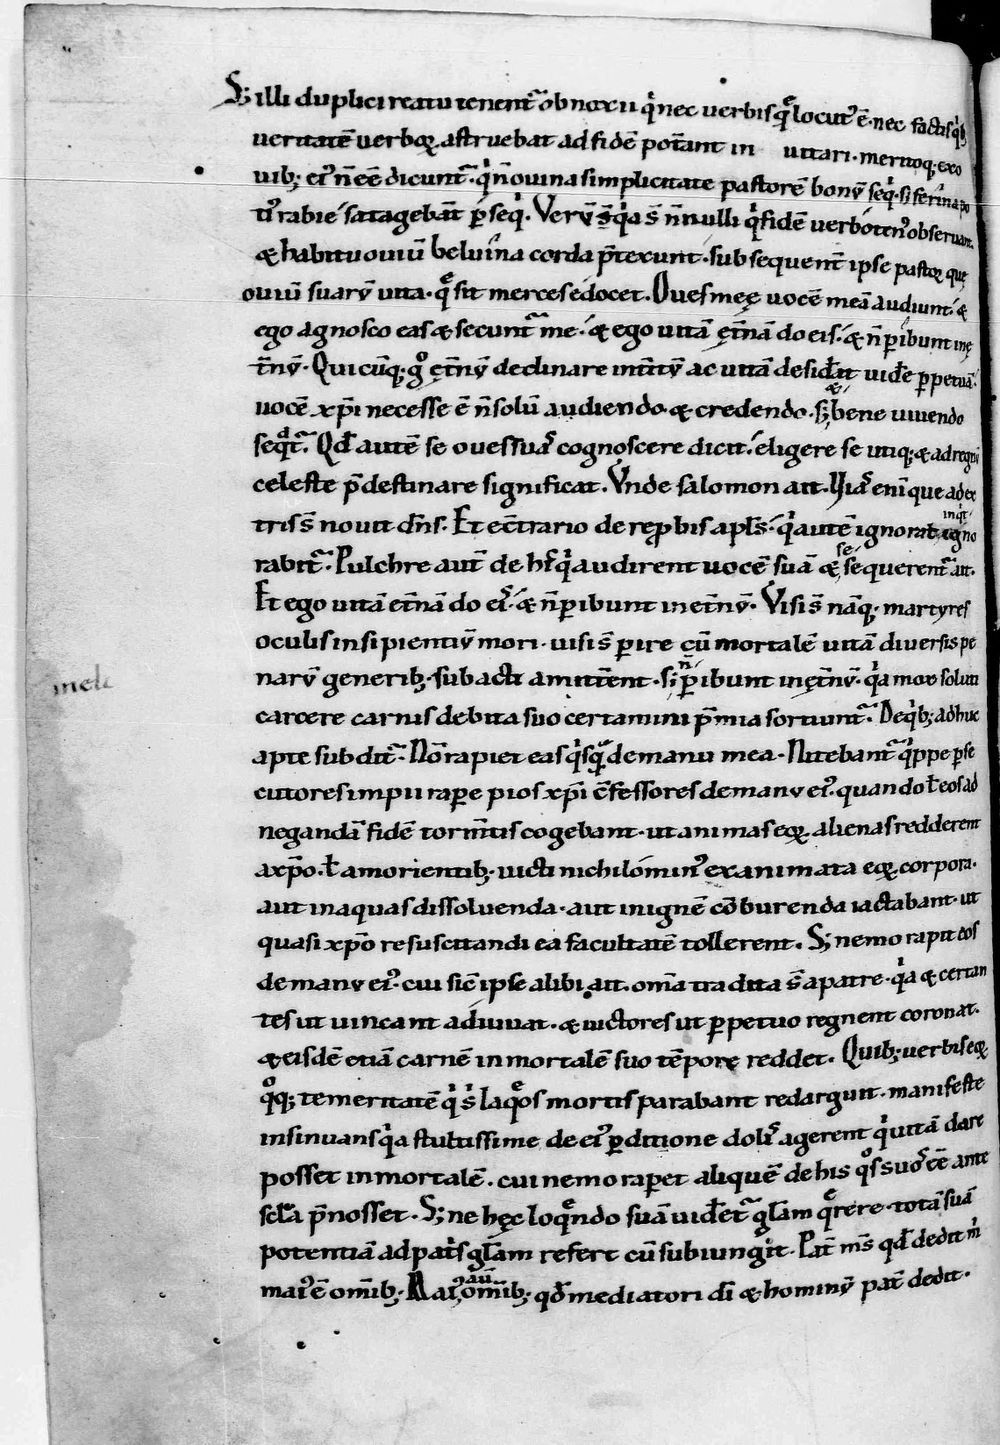 S; illi duplici reatu tenent᷑ obnoxii qͥ nec uerbis qͣ locut᷒ ē. nec factis qͥb;
ueritatē uerboꝝ astruebat ad fidē potant in    uitari. meritoq; ex o
uib; ei᷒ n̄ eē dicunt᷑. qͥ n̄ ouina simplicitate pastorē bonū seqͥ. si ferina po
ti᷒ rabie satagebāt ꝑseqͥ. Verū s̄ qͥa s̄ n̄nulli qͥ fidē uerboten᷒ obseruant.
& habitu ouiū beluina corda p̄texunt. subsequent̄ ipse pastoꝝ que
ouiū suarū uita. qͣ sit merces edocet. Oues meę uocē meā audiunt. &
ego agnosco eas & secunt᷑ me. & ego uitā ęt̄nā do eis. & n̄ ꝑibunt in ę
t̄nū. Quicūq; gͦ ęt̄nū declinare int̄itū ac uitā desiđat uiđe ꝑpetuā.
uocē xp̄i necesse ē n̄ solū audiendo & credendo. s; & bene uiuendo
seqͣt᷑. Qđ autē se oues suas cognoscere dicit. eligere se utiq; & ad regnū
celeste p̄destinare significat. Vnde salomon ait. Uias enī que a dex
tris s̄ nouit dn̄s. Et eͨtrario de reꝓbis apl̄s. qͥ autē ignorat inqͥt igno
rabit᷑. Pulchre aut̄ de his qͥ audirent uocē suā & se sequerent᷑ ait.
Et ego uitā et̄nā do eis. & n̄ ꝑibunt in et̄nū. Visi s̄ nāq; martyres
oculis insipientiū mori. uisi s̄ ꝑire cū mortalē uitā diuersis pe
narū generib; subacti amitt̄ent. s; n̄ ꝑibunt in ęt̄nū. qͥa mox soluti
carcere carnis debita suo certamini p̄mia sortiunt᷑. De qͥb; adhuc
apte subdit᷑. Non rapiet eas qͥsqͣ de manu mea. Nitebant᷑ qͥppe ꝑse
cutores impii raꝑe pios xp̄i ͨfessores de manu ei᷒. quando ł eos ad
negandā fidē torm̄tis cogebant. ut animas eoꝝ alienas redderent
a xp̄o. ł a morientib; uicti nichilomin᷒ exanimata eoꝝ corpora.
aut in aquas dissoluenda. aut in ignē cōburenda iactabant. ut
quasi xp̄o resuscitandi ea facultatē tollerent. S; nemo rapit eos
de manu ei᷒. cui sic̄ ipse alibi ait. om̄a tradita s̄ a patre. qͥa & certan
tes ut uincant adiuuat. & uictores ut ꝑpetuo regnent coronat.
& eisdē etiā carnē inmortalē suo tēpore reddet. Quib; uerbis eoꝝ
qͦq; temeritatē qͥ s͛ laqͣos mortis parabant redarguit. manifeste
insinuans qͥa stultissime de ei᷒ ꝑditione dolis agerent qͥ uitā dare
posset inmortalē. cui nemo raꝑet aliquē de his qͦs suos eē ante
scl̄a p̄nosset. S; ne hęc loqͣndo suā uiđet᷑ gl̄am qͣrere. totā suā
potentiā ad pat͛s gl̄am refert cū subiungit. Pat̄ m̄s qđ dedit m͛
mai᷒ ē omib; Mai᷒ aū omīb; qđ mediatori dī & hominū pat̄ dedit.